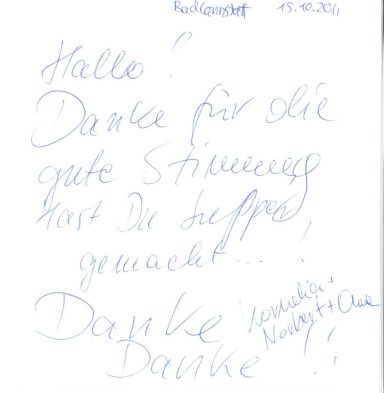 Bad Cannstatt 15.10.2011
Hallo!
Danke für die
gute Stimmung
Hast Du supper
gemacht....!
Danke
Kornelia +
Norbert +
Danke!!